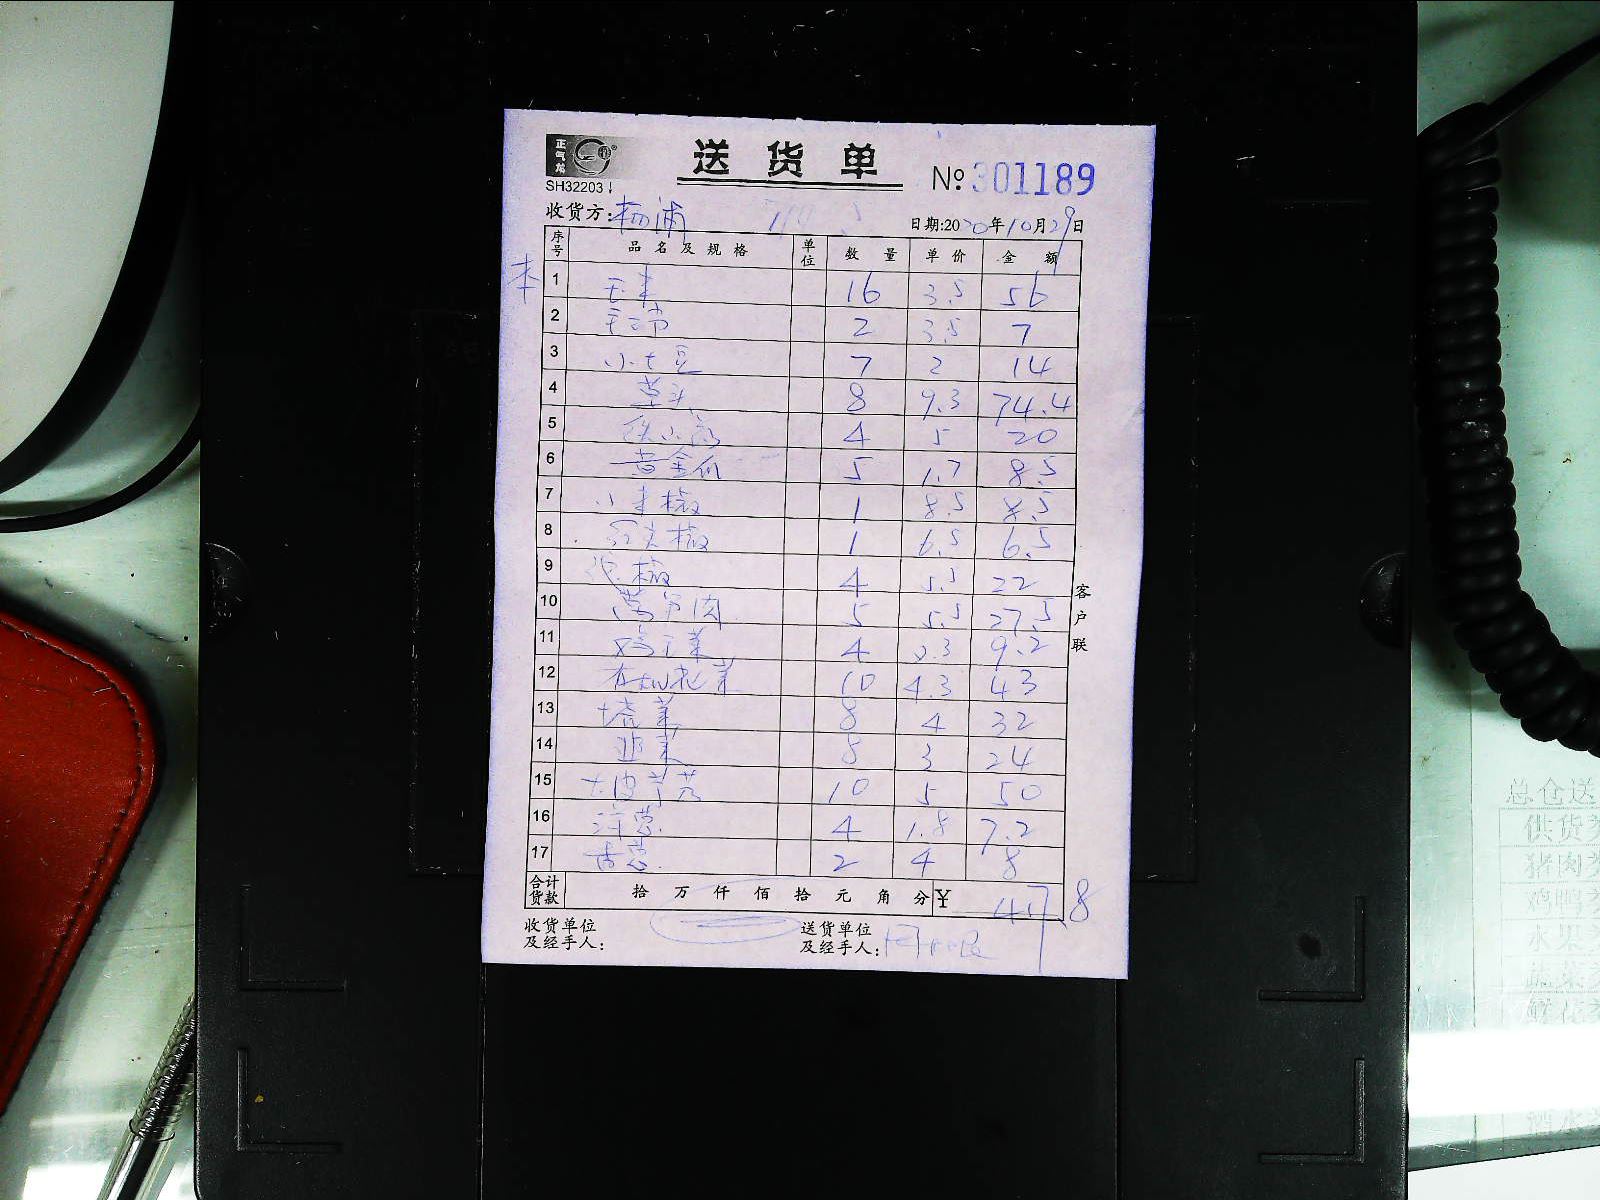 正气龙
送货单
№ 301189
SH32203
收货方: 杨浦
日期:2020年10月29日
序号 品名及规格 单位 数量 单价 金额
本
1 玉米 16 3.5 56
2 2 3.5 7
3 小土豆 7 2 14
4 草头 8 9.3 74.4
5 铁山药 4 5 20
6 黄金瓜 5 1.7 8.5
7 小米椒 1 8.5 8.5
8 红尖椒 1 6.5 6.5
9 椒 4 5.5 22
10 5 5.5 27.5
11 娃娃菜 4 2.3 9.2
12 有机花菜 10 4.3 43
13 塌菜 8 4 32
14 韭菜 8 3 24
15 10 5 50
16 洋葱 4 1.8 7.2
17 香葱 2 4 8
合计货款 拾 万 仟 佰 拾 元 角 分 ¥ 417.8
客户联
收货单位及经手人:
送货单位及经手人:
总仓送
供货
猪肉
鸡鸭
水果
蔬菜
鲜花
酒水